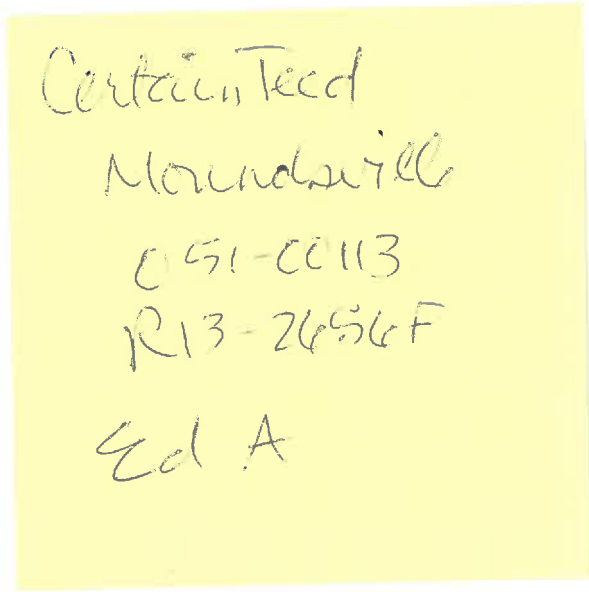 CertainTeed
Moundsville
051-00113
R13-2656F
Ed A